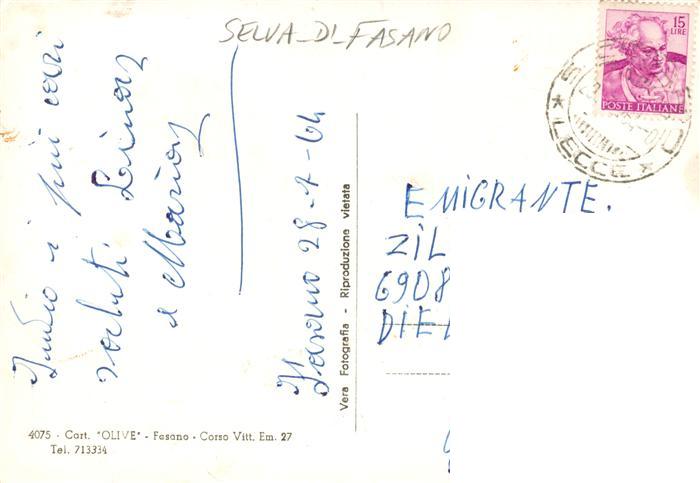 SELVA-DI-FASANO
15
LIRE
POSTE ITALIANE
* LECCE *
Invio i più cari
saluti.
e
Fasano 28-7-64
Vera Fotografia - Riproduzione vietata
EMIGRANTE.
ZIL
6908
DIE
4075 - Cart. "OLIVE" - Fasano - Corso Vitt. Em. 27
Tel. 713334